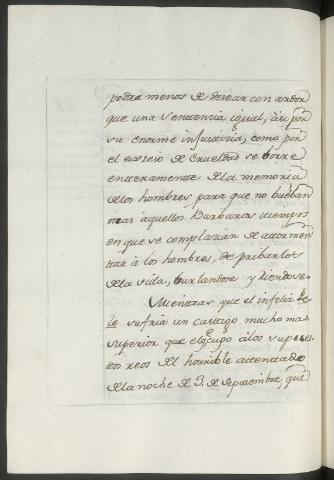 podra menos de desear con ardor
que una sentencia igual, asi por
su enorme injusticia, como por
el exceso de crueldad se borre
enteramente de la memoria
de los hombres, para que no buelban
mas à aquellos barbaros tiempos
en que se complazian de atormen
tar à los hombres, de pribarlos
de la vida, burlandose y riendose.
Mientras que el infeliz Be
le sufria un castigo mucho mas
superior que el q.e cupo à los supues
tos reos del horrible attentado
de la noche de 3. de Septiembre, que